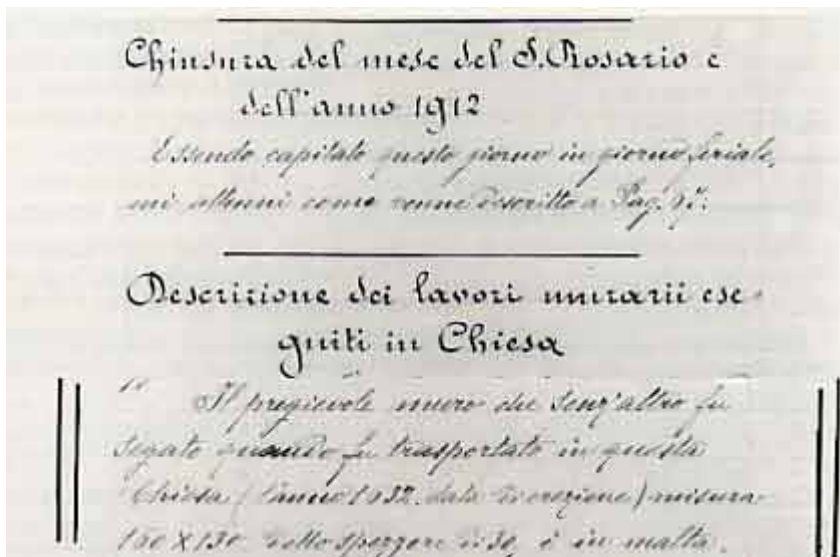 Chiusura del mese del S. Rosario e
dell'anno 1912
Essendo capitato questo giorno in giorno feriale,
mi attenni come venne descritto a Pag.
Descrizione dei lavori murarii ese-
guiti in Chiesa
Il pregievole muro che senz'altro fu
segato quando fu trasportato in questa
Chiesa (l'anno 1632 data di erezione) misura
160 X 130 dello spessore di 30, è in malta.